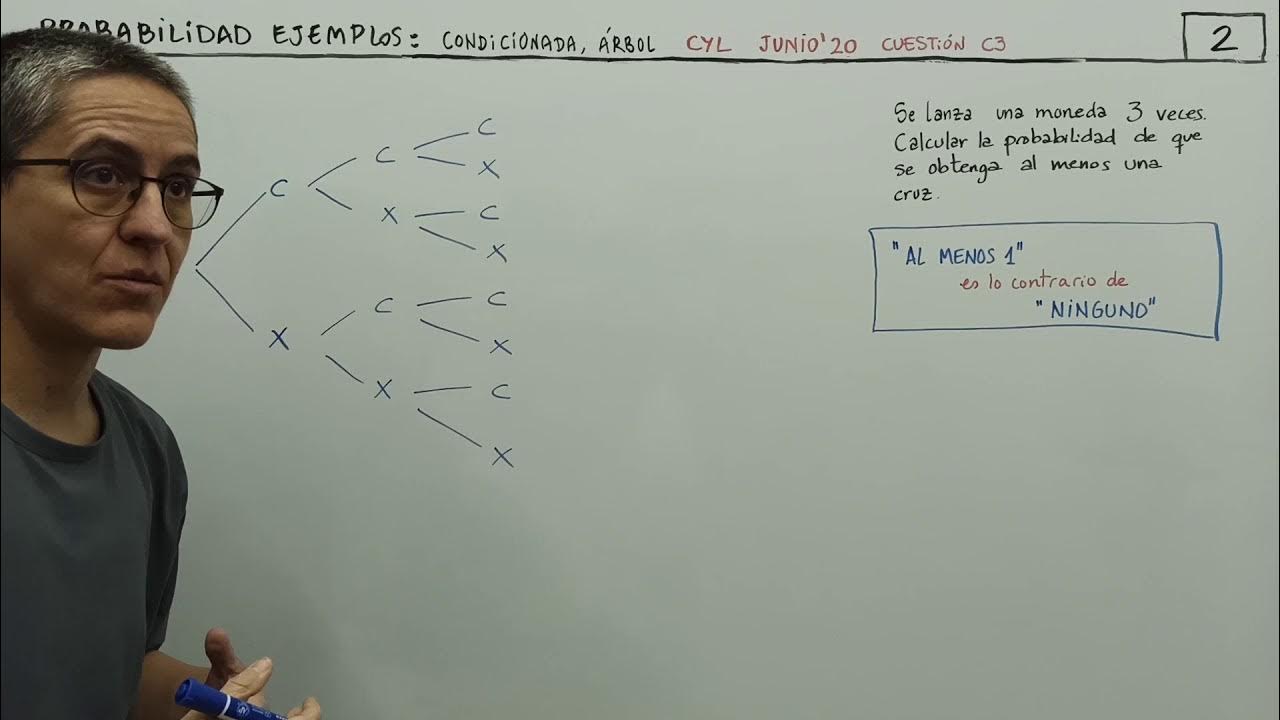 PROBABILIDAD EJEMPLOS: CONDICIONADA, ÁRBOL CYL JUNIO'20 CUESTIÓN C3
2
Se lanza una moneda 3 veces.
Calcular la probabilidad de que
se obtenga al menos una
cruz.
"AL MENOS 1"
es lo contrario de
"NINGUNO"
C
C
C
X
X
C
X
X
C
C
X
X
C
X